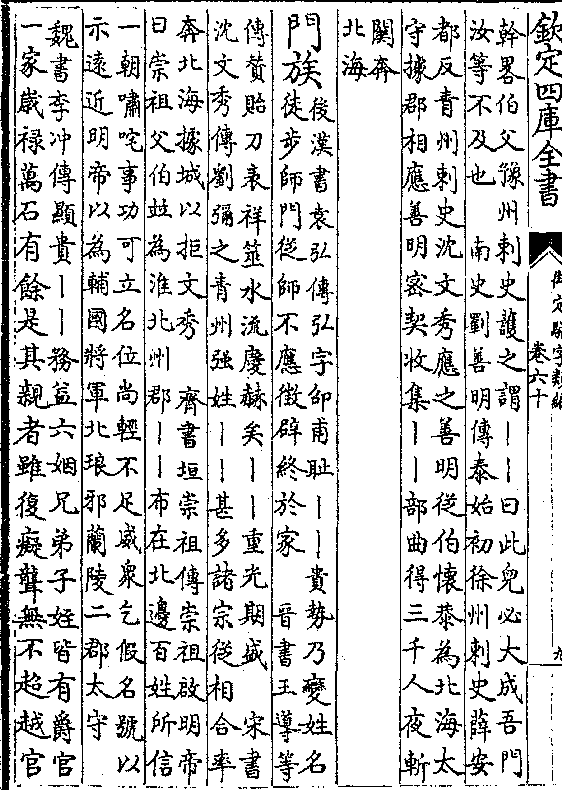 欽定四庫全書
御定駢字類編
卷六十
九
幹畧伯父豫州刺史護之謂——曰此兒必大成吾門
汝等不及也　南史劉善明傳泰始初徐州刺史薛安
都反青州刺史沈文秀應之善明從伯懷恭為北海太
守據郡相應善明密契收集——部曲得三千人夜斬
關奔
北海
門族
後漢書袁弘傳弘字邵甫耻——貴勢乃變姓名
徒步師門從師不應徵辟終於家　晉書王導等
傳贊貽刀表祥筮水流慶赫矣——重光期盛　宋書
沈文秀傳劉彌之青州强姓——甚多諸宗從相合率
奔北海據城以拒文秀　齊書垣崇祖傳崇祖啟明帝
曰崇祖父伯並為淮北州郡——布在北邊百姓所信
一朝嘯咤事功可立名位尚輕不足威衆乞假名號以
示遠近明帝以為輔國將軍北琅邪蘭陵二郡太守
魏書李冲傳顯貴——務益六姻兄弟子姪皆有爵官
一家歲祿萬石有餘是其親者雖復癡聾無不超越官